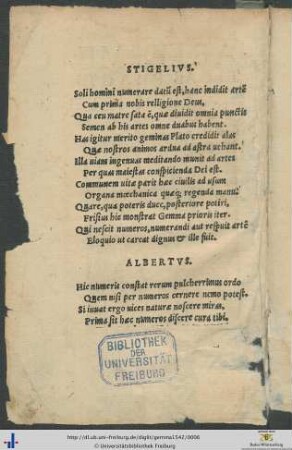 STIGELIVS.
Soli homini numerare datũ est, hanc indidit artẽ
Cum prima nobis relligione Deus,
Qua ceu matre sata ẽ, quæ diuidit omnia punctis
Semen ab his artes omne duabus habent.
Has igitur merito geminas Plato credidit alas
Quæ nostros animos ardua ad astra uehant.
Illa uiam ingenuas meditando munit ad artes
Per quas maiestas conspicienda Dei est.
Communem uitæ parit hæc ciuilis ad usum
Organa mœchanica quæq; regenda manu.
Quare, qua poteris duce, posteriore potiri,
Frisius hic monstrat Gemma prioris iter.
Qui nescit numeros, numerandi aut respuit artẽ
Eloquio ut careat dignus & ille fuit.
ALBERTVS.
Hic numeris constat rerum pulcherrimus ordo
Quem nisi per numeros cernere nemo potest.
Si iuuat ergo uices naturæ noscere miras,
Prima sit hæc numeros discere cura tibi.
BIBLIOTHEK
DER
UNIVERSITÄT
FREIBURG
http://dl.ub.uni-freiburg.de/diglit/gemma1542/0006
© Universitätsbibliothek Freiburg
Baden-Württemberg